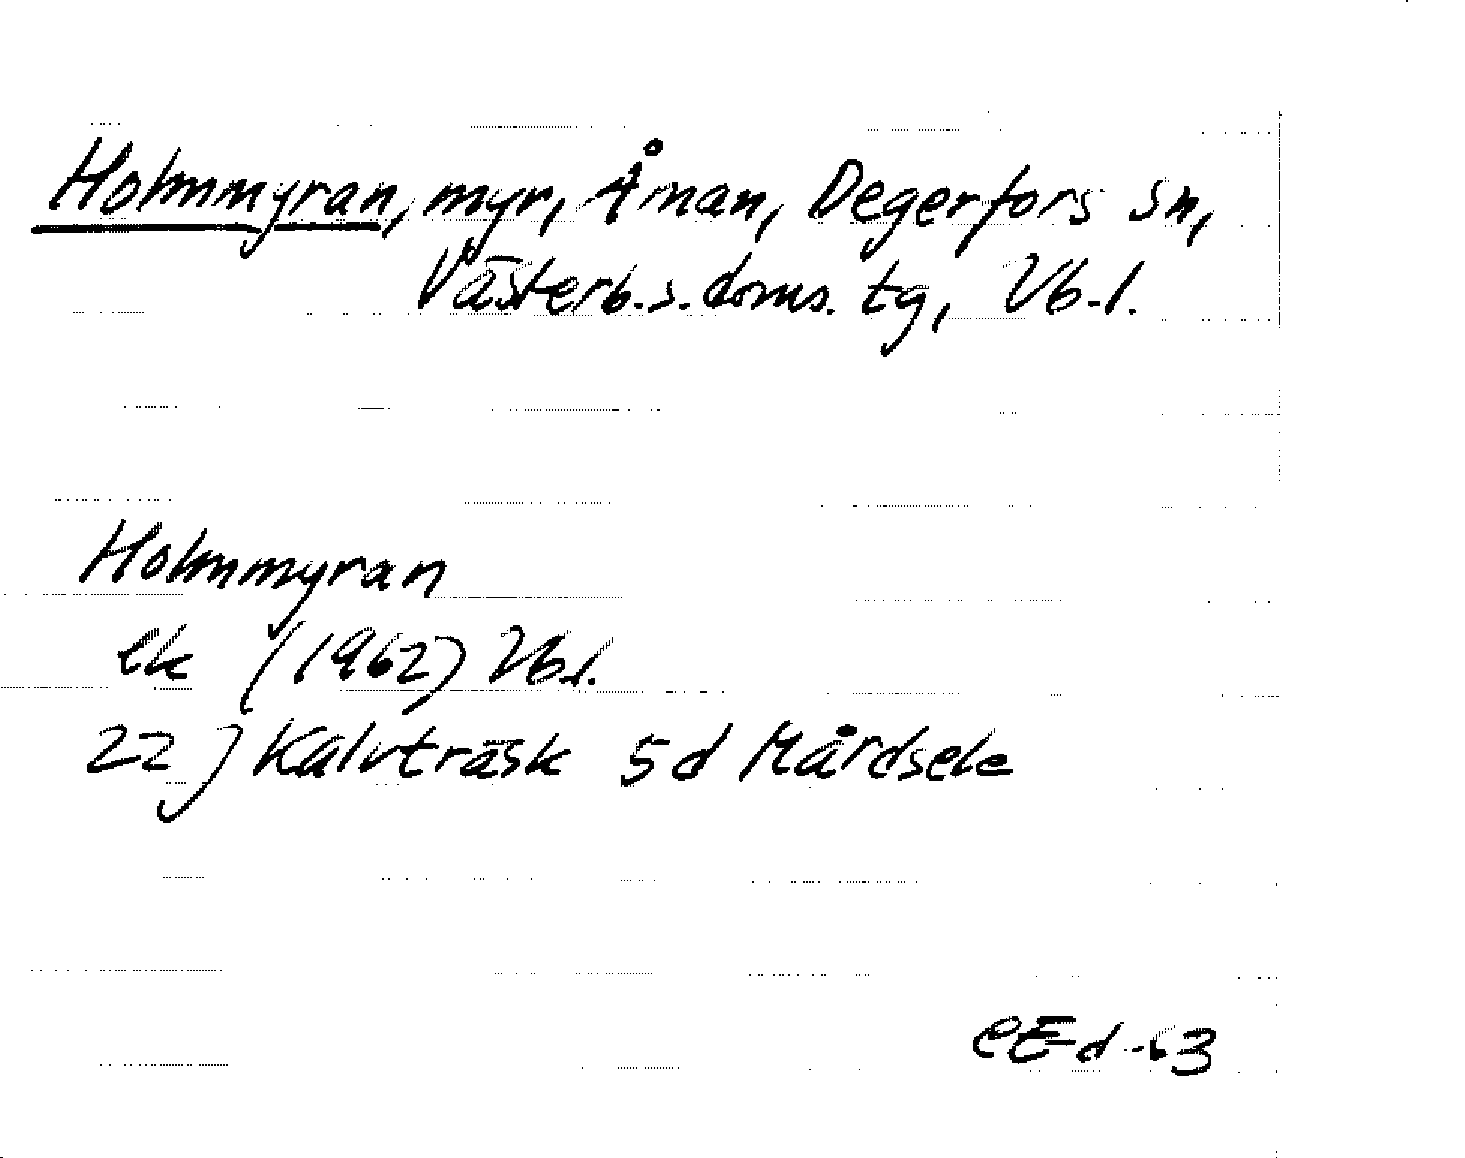 Holmmyran, myr, Åman, Degerfors sn,
Västerb.s.doms. tg, Vb.l.
Holmmyran
ek (1962) Vb.l.
22 J Kalvträsk 5d Mårdsele
CEd -63